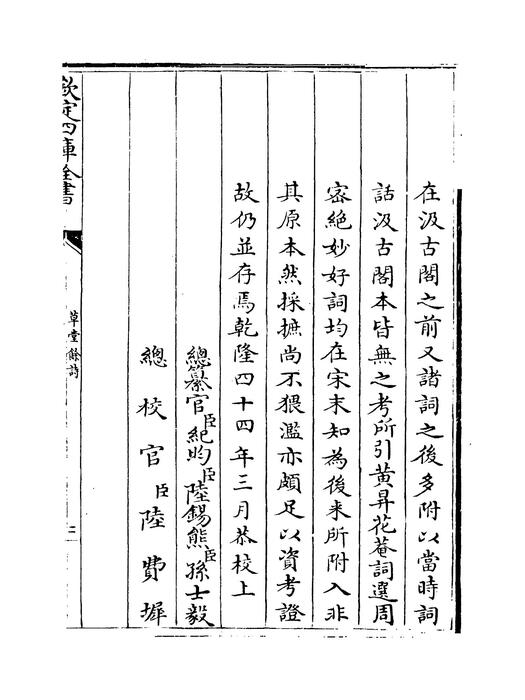 在汲古閣之前又諸詞之後多附以當時詞
話汲古閣本皆無之考所引黄昇花菴詞選周
密絶妙好詞均在宋末知為後来所附入非
其原本然採摭尚不猥濫亦頗足以資考證
故仍並存焉乾隆四十四年三月恭校上
總纂官臣紀昀臣陸錫熊臣孫士毅
總校官臣陸費墀
欽定四庫全書
草堂餘詩
三